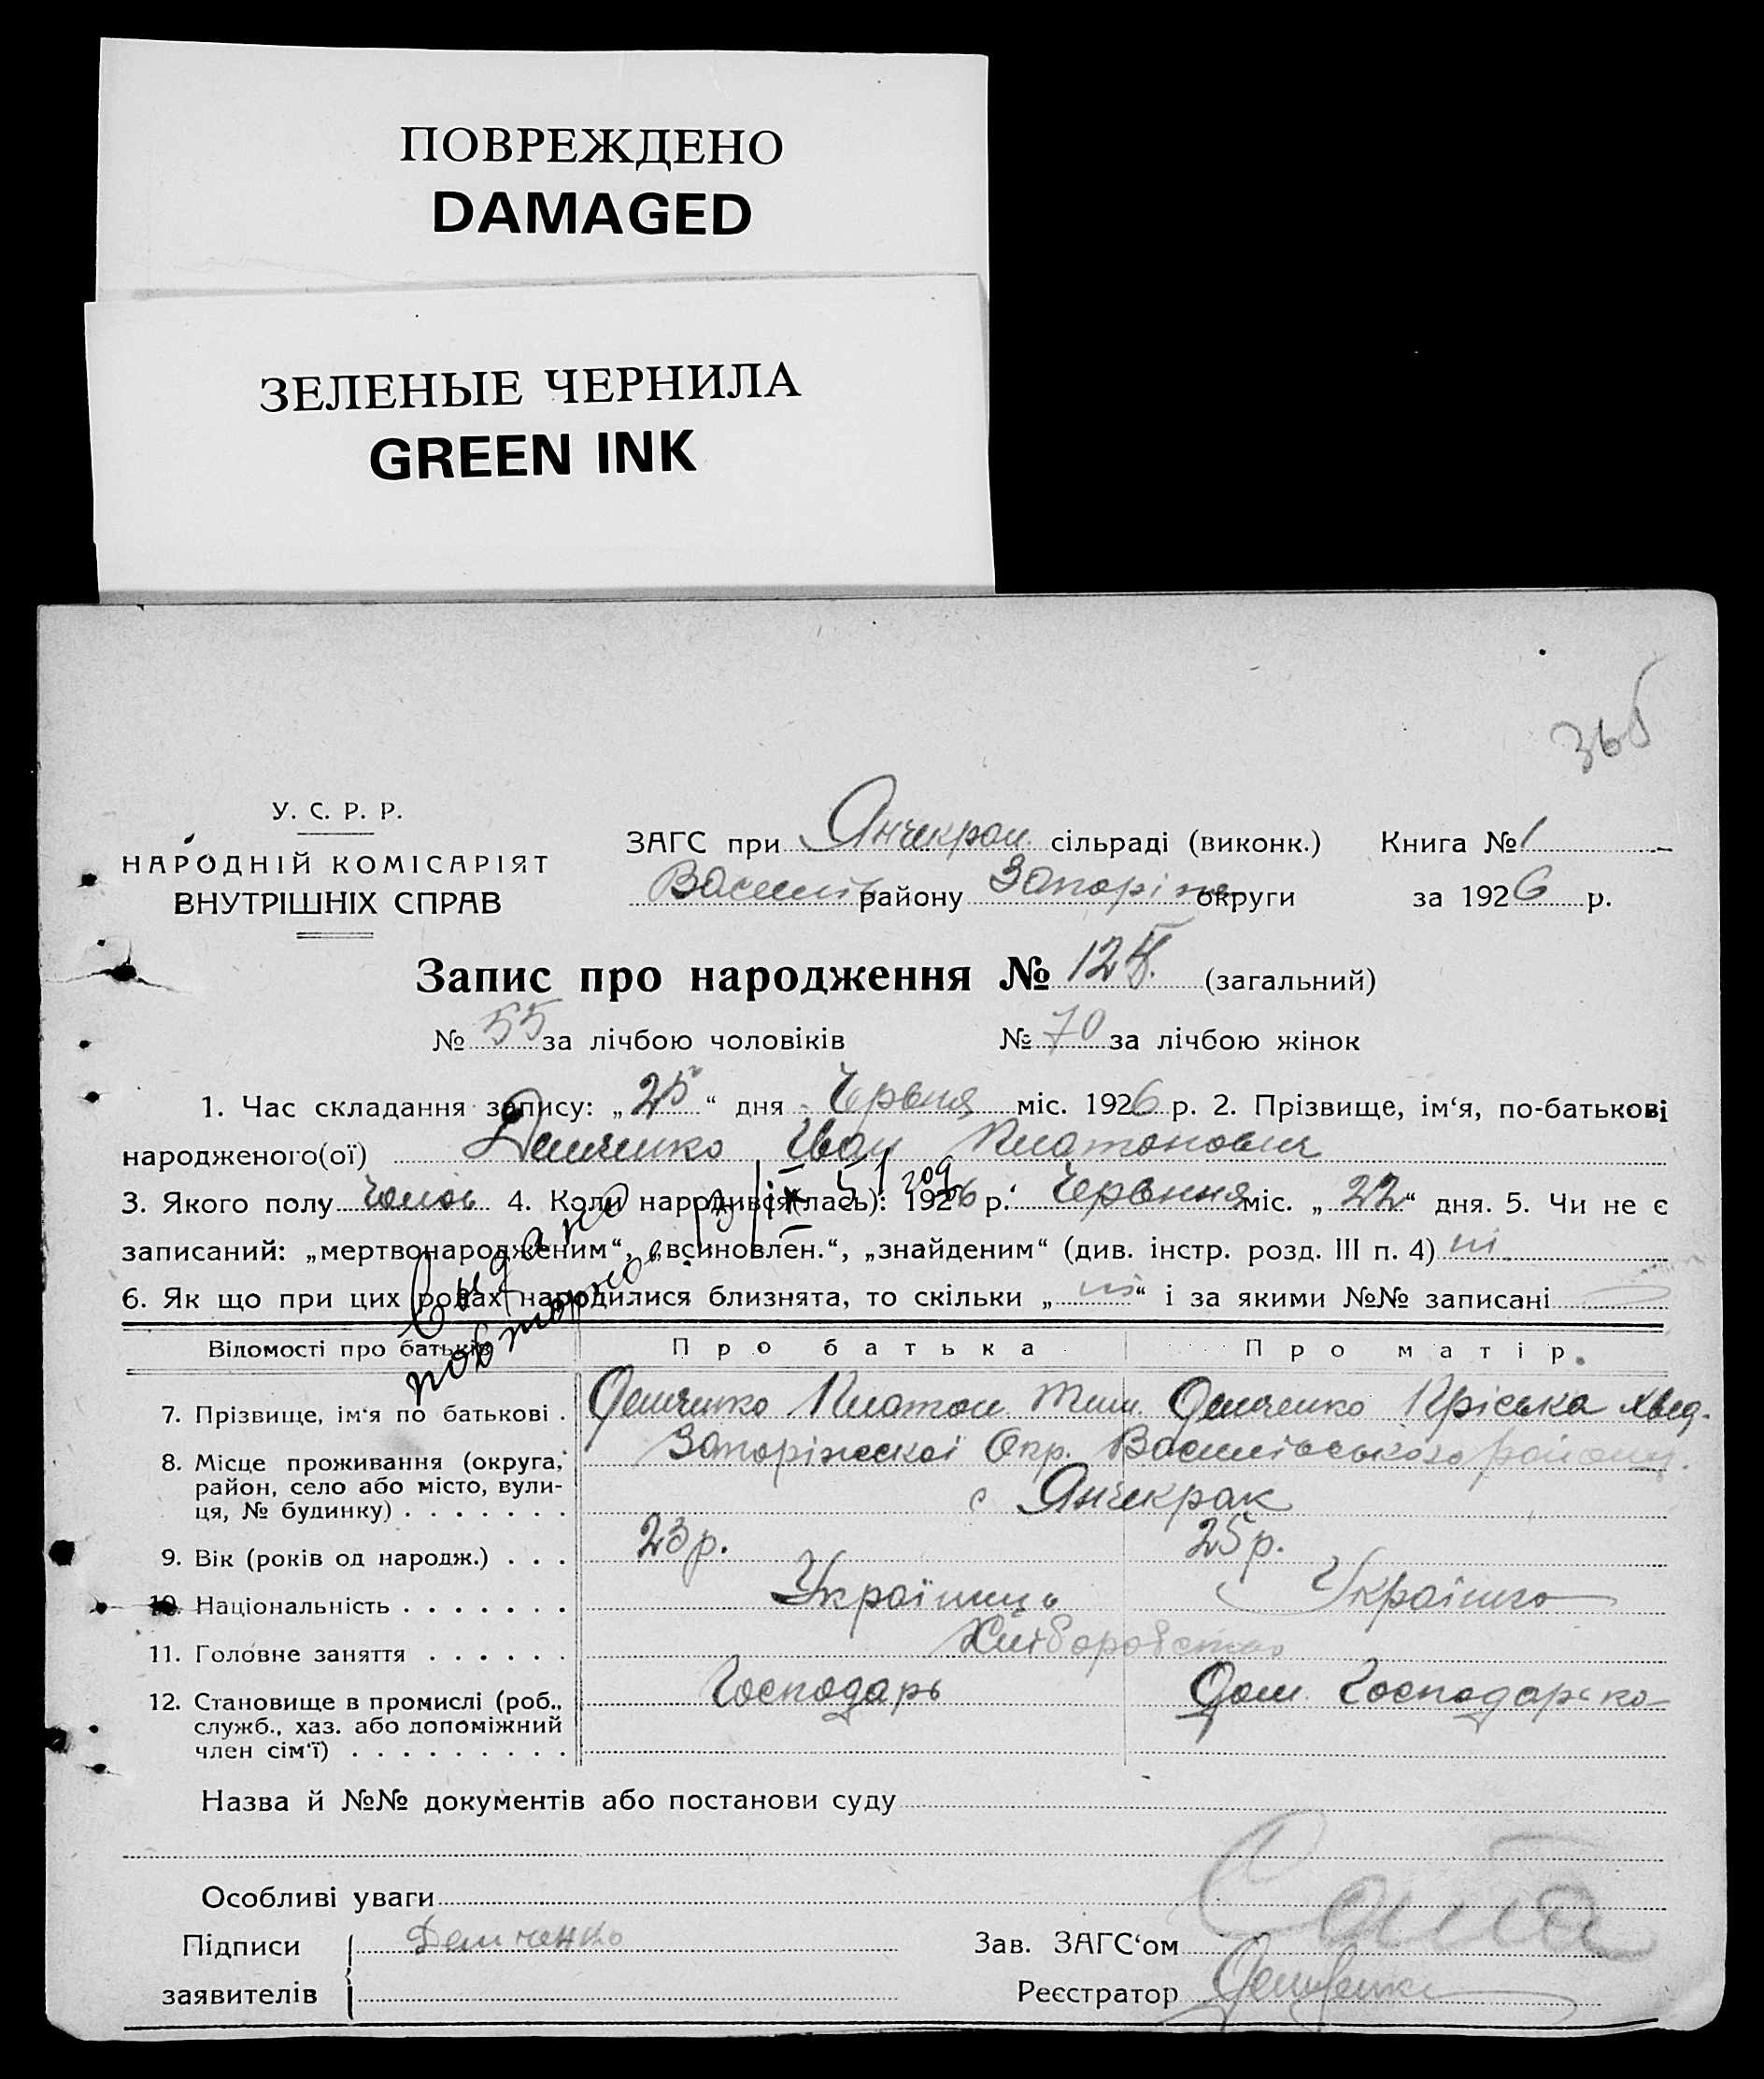 ПОВРЕЖДЕНО
DAMAGED
ЗЕЛЕНЫЕ ЧЕРНИЛА
GREEN INK
У. С. Р. Р.
НАРОДНІЙ КОМІСАРІЯТ
ВНУТРІШНІХ СПРАВ
ЗАГС при Янчекрак сільраді (виконк.) Книга № 1
Василів району Запоріж округи за 1926 р.
Запис про народження № 125 (загальний)
№ 55 за лічбою чоловіків № 70 за лічбою жінок
1. Час складання запису: „25“ дня Червня міс. 1926 р. 2. Прізвище, ім‘я, по-батькові
народженого(ої) Демченко Іван Платонович
3. Якого полу чолов 4. Коли народився(лась): 1926 р. Червння міс. „22“ дня. 5. Чи не є
записаний: „мертвонародженим“, „всиновлен.“, „знайденим“ (див. інстр. розд. III п. 4) ні
6. Як що при цих родах народилися близнята, то скільки „ні“ і за якими №№ записані
Видано
повторно
IX 51 год
Відомості про батьків Про батька Про матір
7. Прізвище, ім‘я по батькові . Демченко Платон Тим. Демченко Пріська Хвед.
8. Місце проживання (округа, район, село або місто, вули-ця, № будинку) . . . . . . . Запоріжської Окр. Василівського району.
с Янчекрак
9. Вік (років од народж.) . . . 23 р. 25 р.
10. Національність . . . . . . . Українець Українка
11. Головне заняття . . . . . . Хліборобство
12. Становище в промислі (роб., Господарь Дом. Господарско
служб., хаз. або допоміжний
член сім‘ї) . . . . . . . . .
Назва й №№ документів або постанови суду
Особливі уваги
Підписи Демченко Зав. ЗАГС‘ом
заявителів Реєстратор Демченко